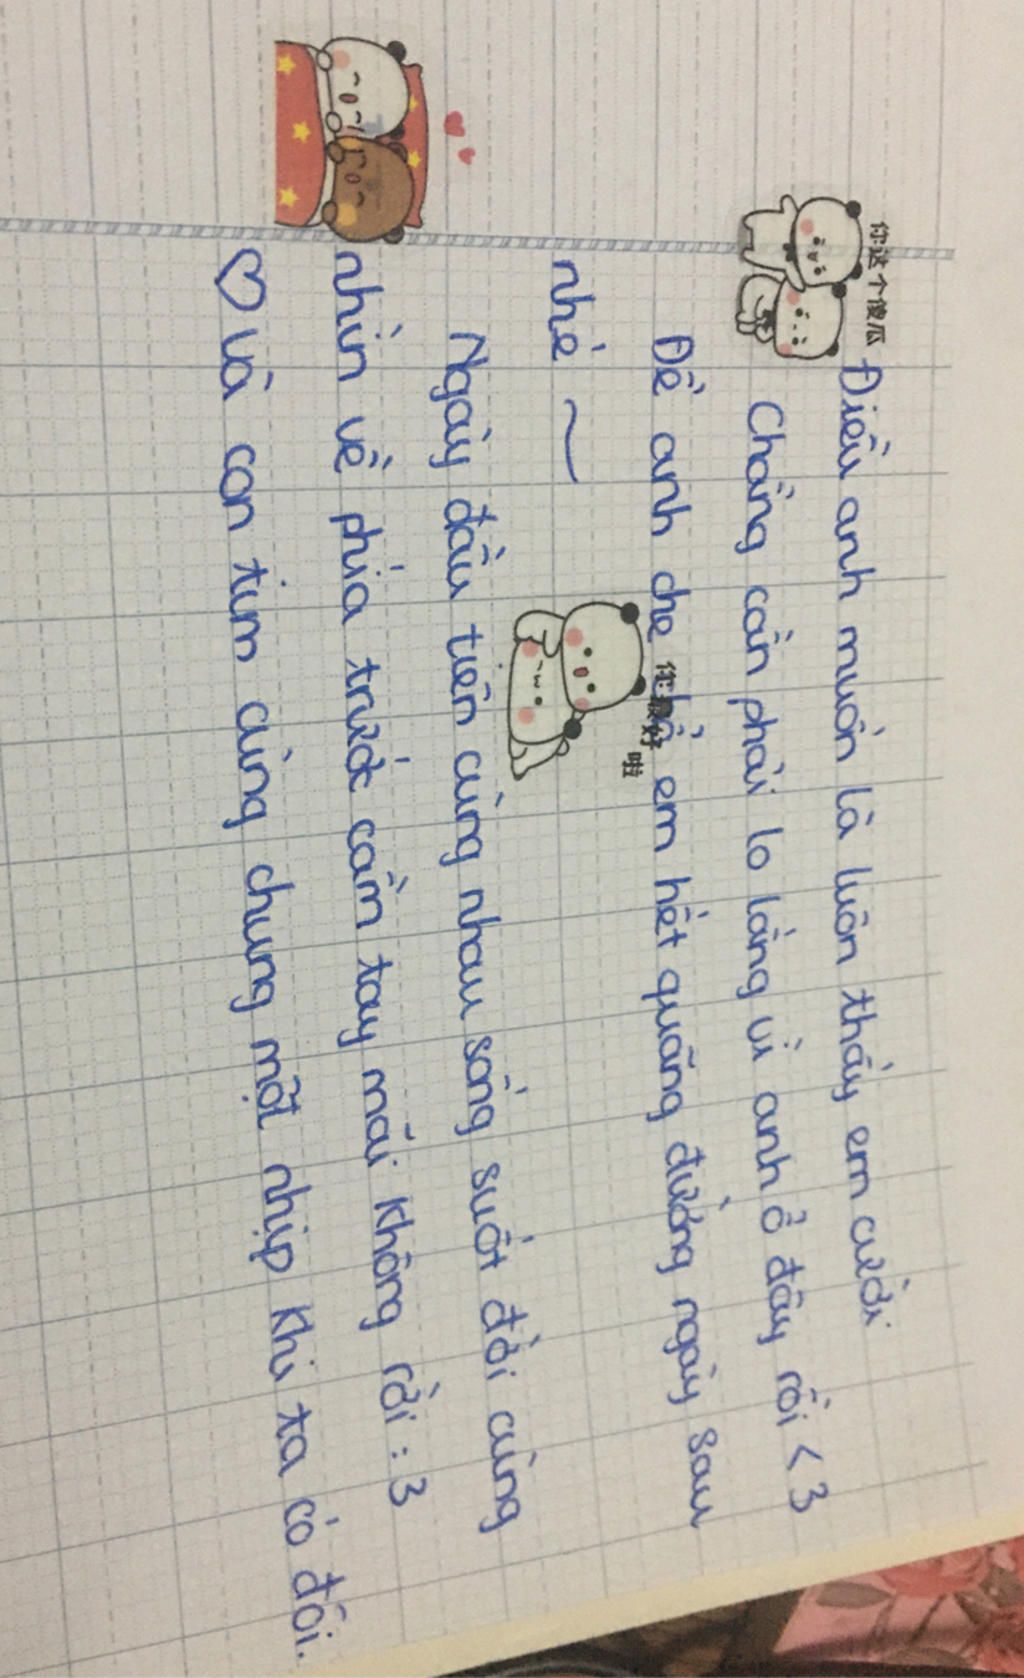 你这个傻瓜
Điều anh muốn là luôn thấy em cười
Chẳng cần phải lo lắng vì anh ở đây rồi <3
Để anh che chở em hết quãng đường ngày sau
你最好啦
nhé ~
Ngày đầu tiên cùng nhau sống suốt đời cùng
nhìn về phía trước cầm tay mãi không rời :3
♡ và con tim cùng chung một nhịp khi ta có đôi.